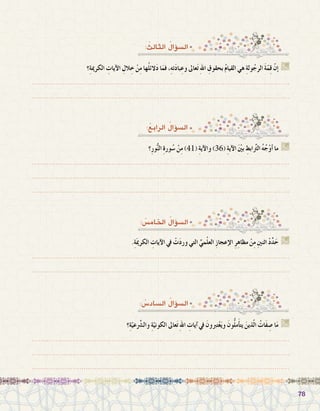 • السؤال الثالث:
إنَّ قمَّةَ الرجولةِ هي القيامُ بحقوقِ الله تعالى وعبادَتِه، فما دَلائلُها مِنْ خِلالِ الآياتِ الكريمة؟
• السؤال الرابع:
ما أَوْجُهُ التَّرابُطِ بَيْنَ الآيةِ (36) والآيةِ (41) مِنْ سُورةِ النُّورِ؟
• السؤال الخامس:
حَدِّدِ اثنينِ مِنْ مظاهِرِ الإعجازِ العِلْميِّ التي وردَتْ في الآياتِ الكريمَةِ.
• السؤال السادس:
مَا صفاتُ الَّذينَ يتأمَّلُونَ ويَعْتبرونَ في آياتِ الله تعالى الكونيَّةِ والشَّرعيَّةِ؟
78